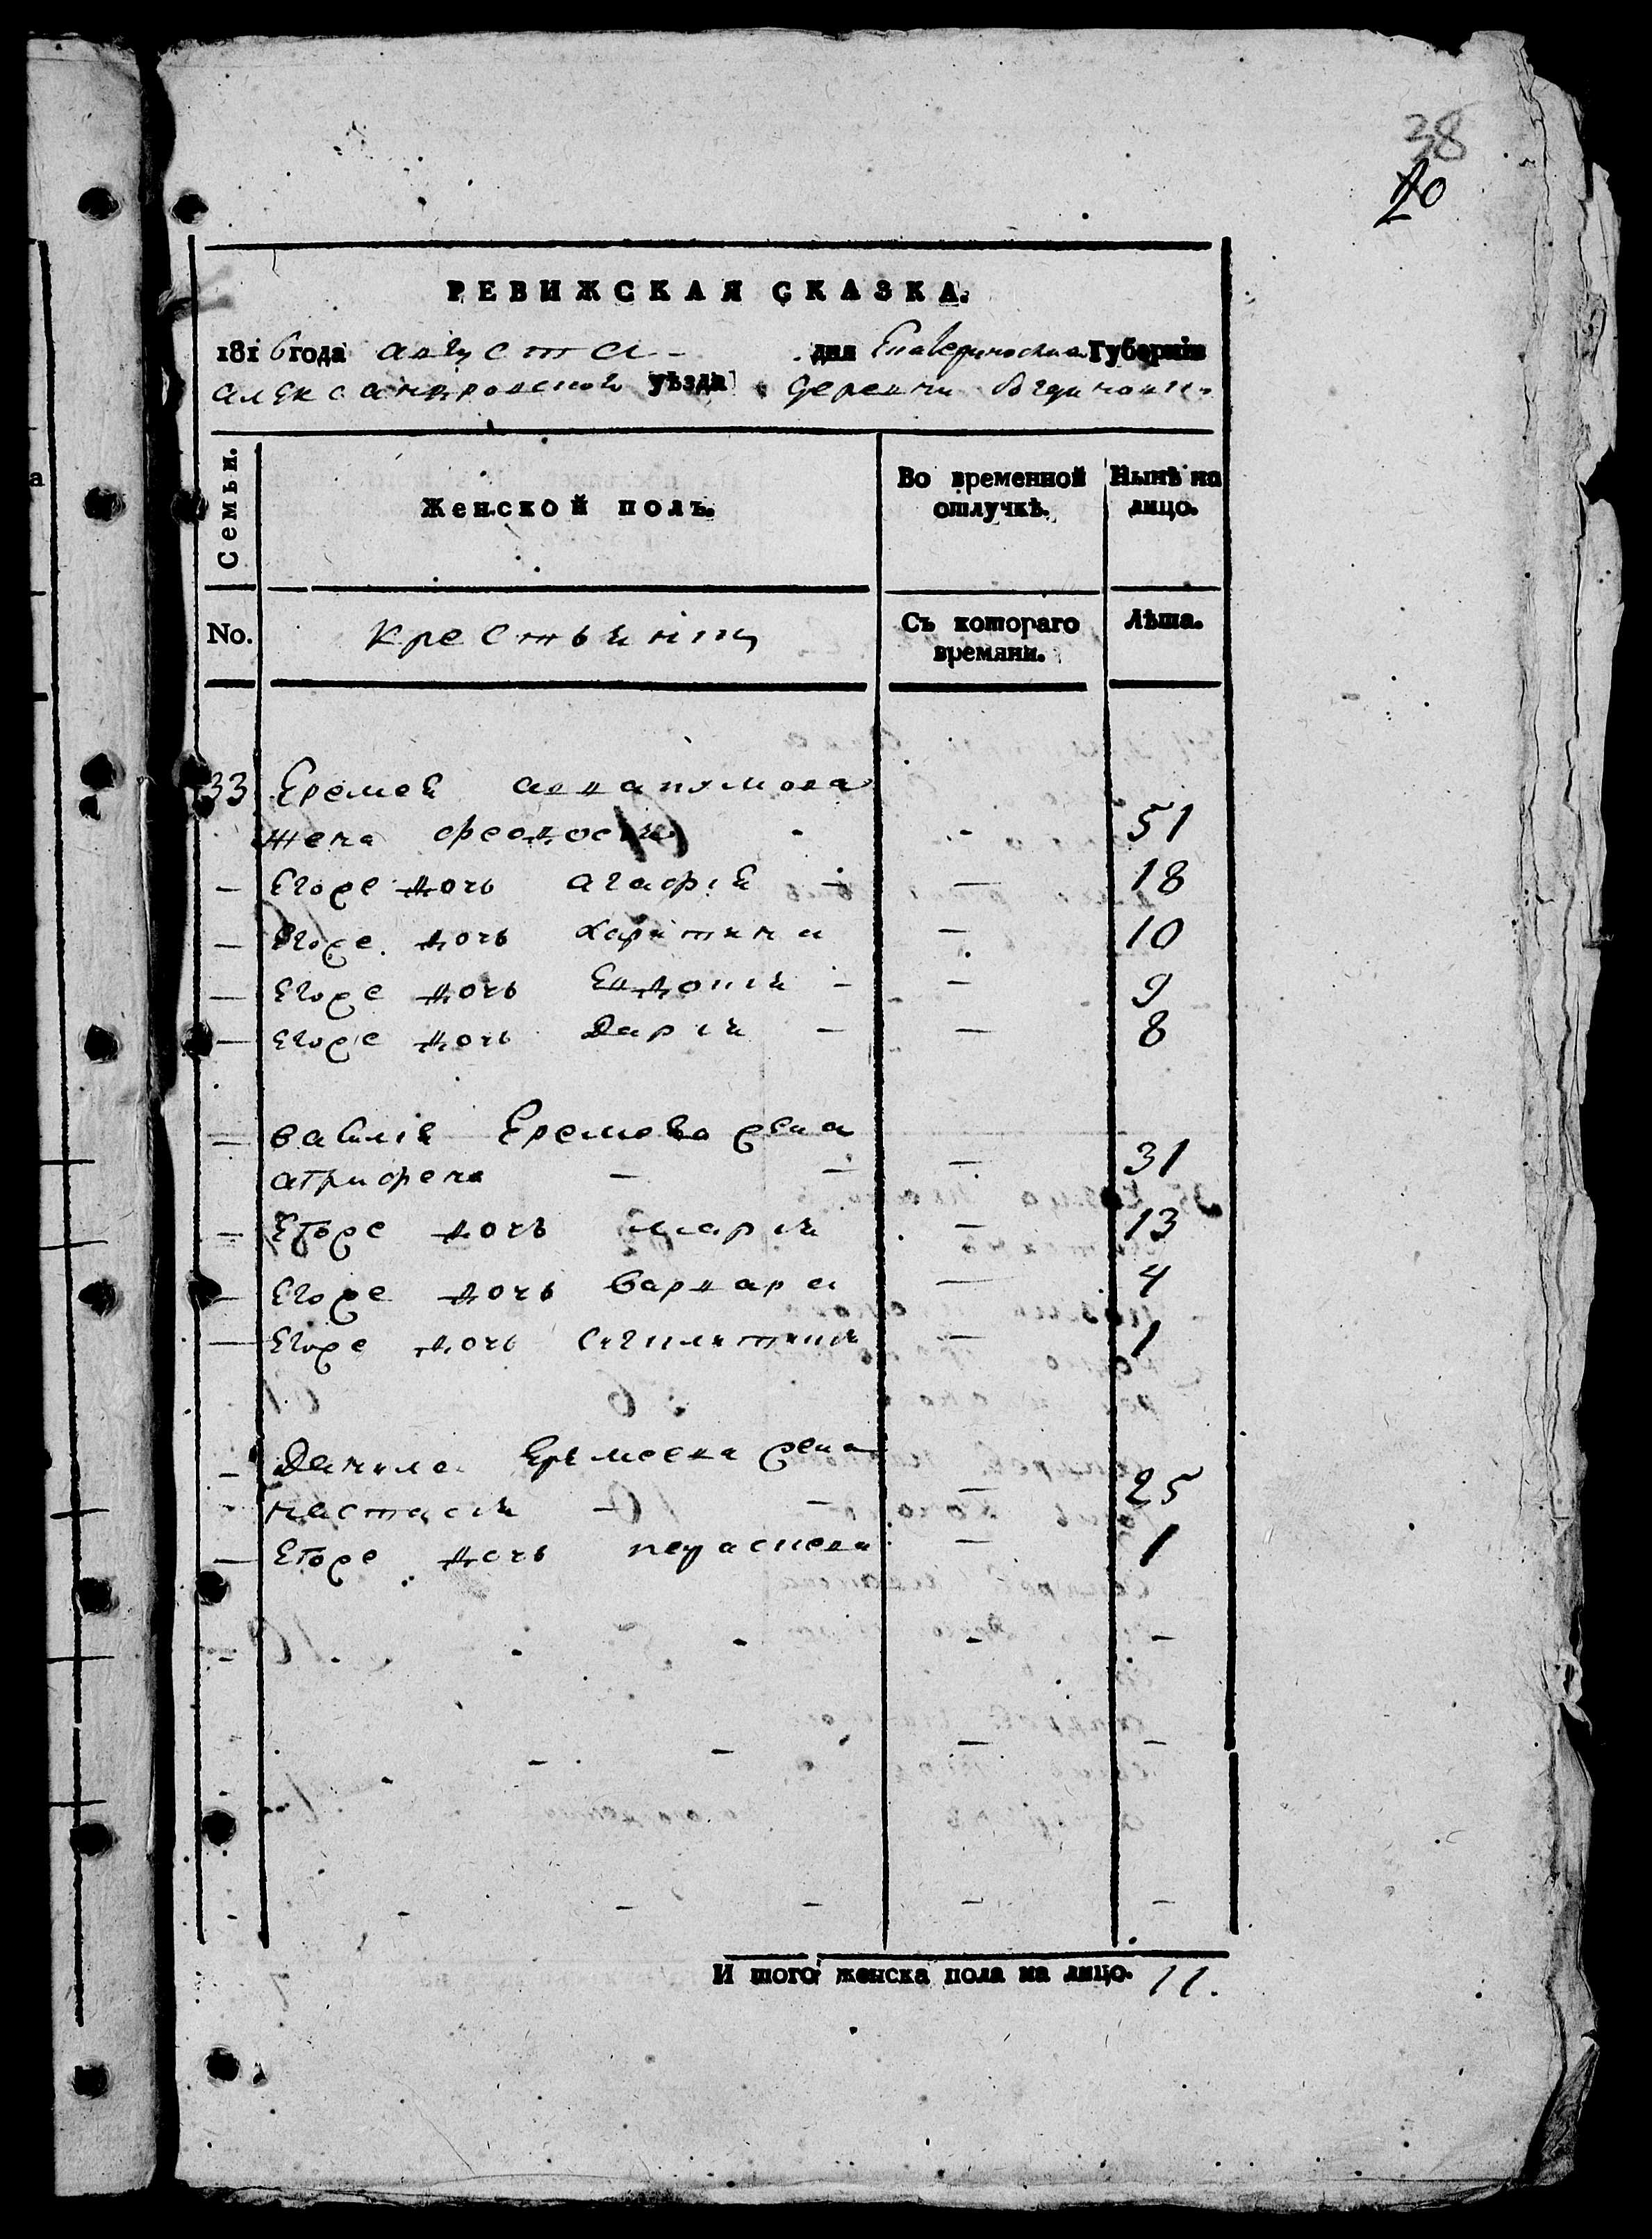 38
20
РЕВИЖСКАЯ СКАЗКА.
1816 года августа дня Екатеринославск Губернiи
александровской уѣзда деревни
Семьи.
Женской полъ.
Во временной отлучкѣ.
Нынѣ на лицо.
No.
крестьянки
Съ котораго времяни.
Лѣта.
33 Еремей
жена феодосия - - 51
- Егоже дочь агафiя - - 18
- Егоже дочь Харитина - 10
- Егоже дочь Евдокия - - 9
- Егоже дочь Дарiя - - 8
- василiя Еремеева жена
агрифена - - - 31
- Егоже дочь мария - 13
- Егоже дочь варвара - 4
- Егоже дочь - 1
- Данила Еремеева жена
настасiя - - - 25
- Егоже дочь параскева - 1
И того женска пола на лицо. 11.